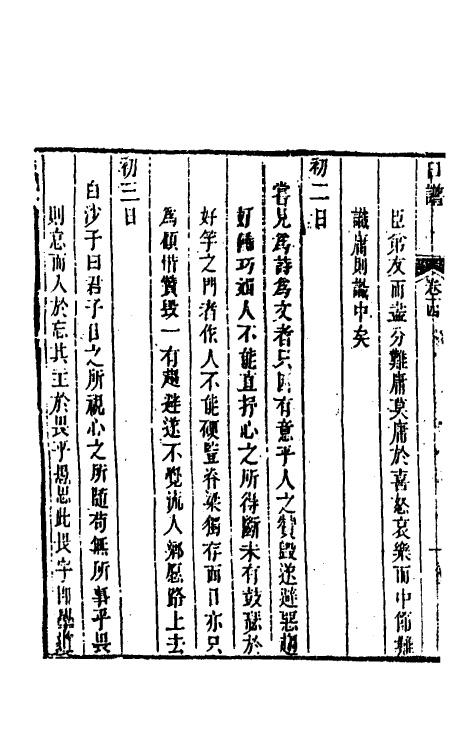 日譜 卷十四
臣弟友而盡分難庸莫庸於喜怒哀樂而中節難
識庸則識中矣
初二日
嘗見為詩為文者只因有意乎人之贊毀遂避惡趨
好稱巧逢人不能直抒心之所得斷未有鼓瑟於
好竽之門者作人不能硬豎脊梁獨存面目亦只
為傾惜贊毀一有趨避遂不覺流入鄉愿路上去
初三日
白沙子曰君子目之所視心之所隨苟無所事乎畏
則忽而入於忘其主於畏乎愚思此畏字即學道